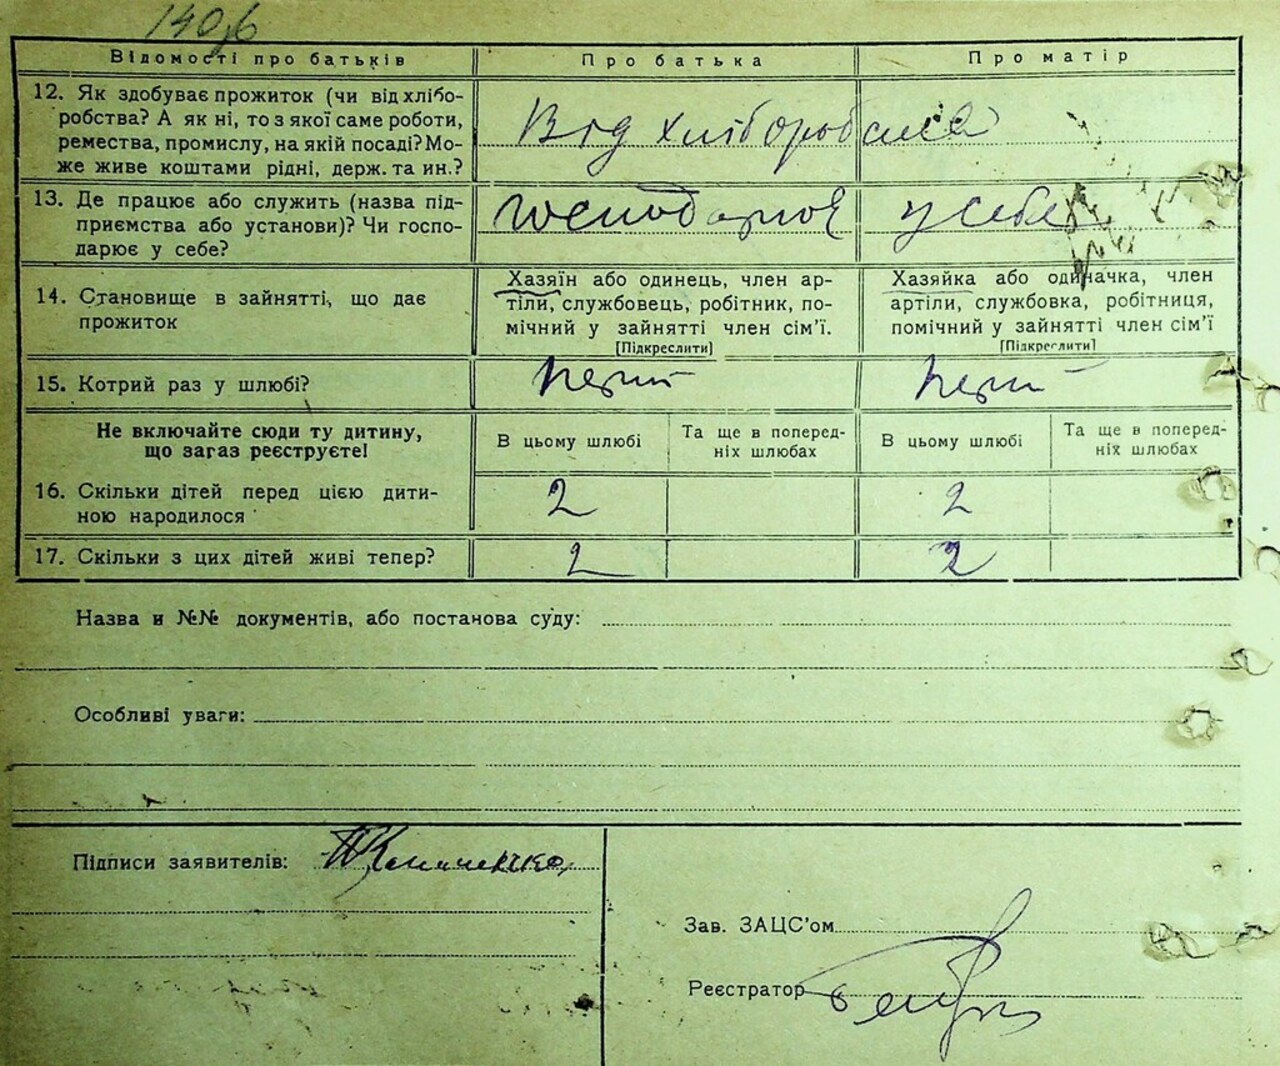 Відомості про батьків
Про батька
Про матір
12. Як здобуває прожиток (чи від хлібо-
робства? А як ні, то з якої саме роботи,
ремества, промислу, на якій посаді? Мо-
же живе коштами рідні, держ. та ин.?
Від хліборобства
13. Де працює або служить (назва під-
приємства або установи)? Чи госпо-
дарює у себе?
господарює
у себе
14. Становище в зайнятті, що дає
прожиток
Хазяїн або одинець, член ар-
тіли, службовець, робітник, по-
мічний у зайнятті член сім'ї.
[Підкреслити]
Хазяйка або одиначка, член
артіли, службовка, робітниця,
помічний у зайнятті член сім'ї
[Підкреслити]
15. Котрий раз у шлюбі?
Не включайте сюди ту дитину,
що загаз реєструєте!
В цьому шлюбі
Та ще в поперед-
ніх шлюбах
В цьому шлюбі
Та ще в поперед-
ніх шлюбах
16. Скільки дітей перед цією дити-
ною народилося
2
2
17. Скільки з цих дітей живі тепер?
2
2
Назва и №№ документів, або постанова суду:
Особливі уваги:
Підписи заявителів:
Зав. ЗАЦС'ом
Реєстратор